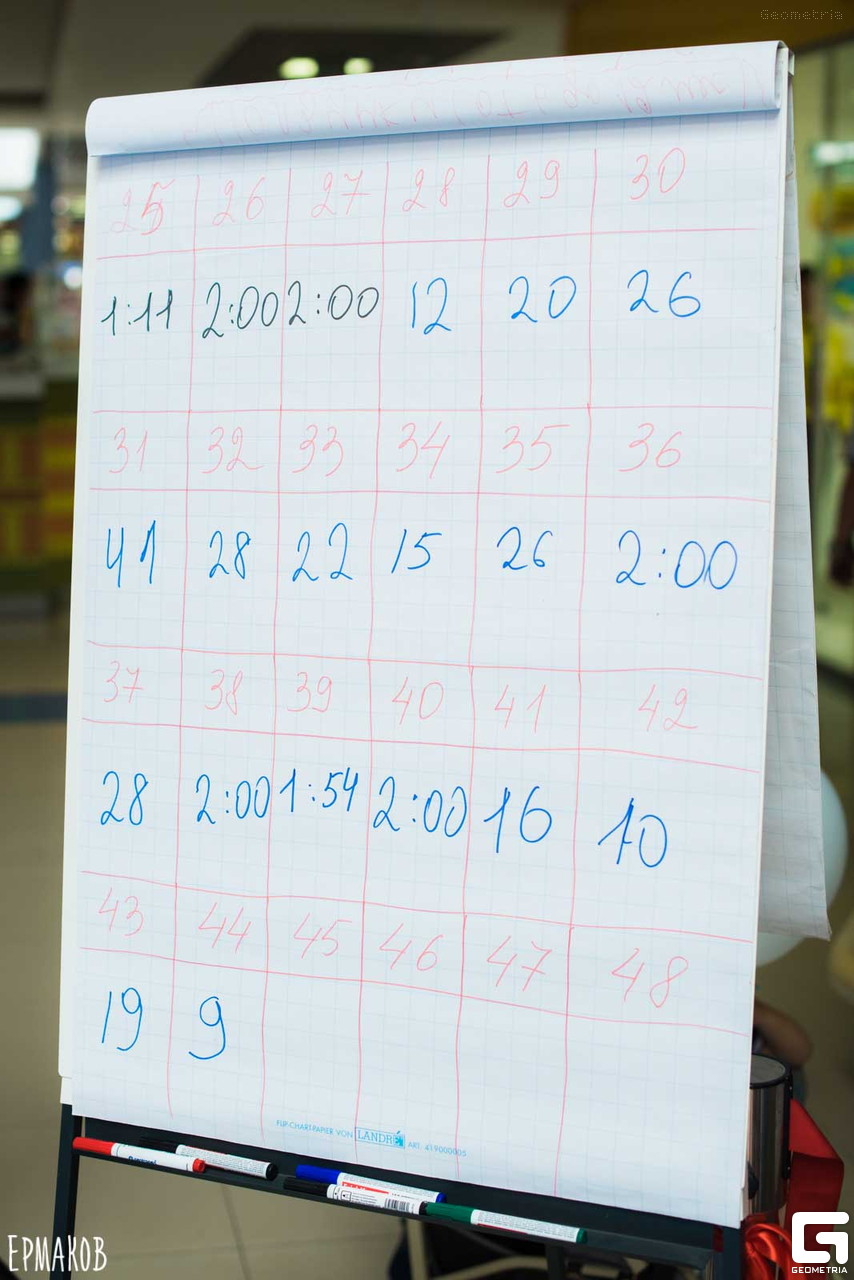 Geometria
25 26 27 28 29 30
1:11 2:00 2:00 12 20 26
31 32 33 34 35 36
41 28 22 15 26 2:00
37 38 39 40 41 42
28 2:00 1:54 2:00 16 10
43 44 45 46 47 48
19 9
FLIP-CHART-PAPIER VON LANDRÉ ART. 419000005
ЕРМАКОВ
GEOMETRIA